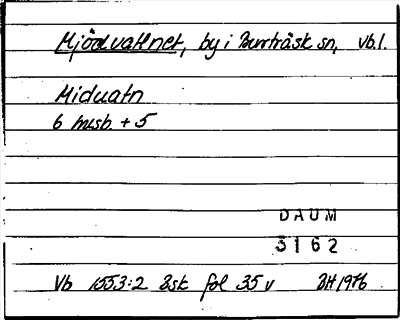 Mjödvattnet, by i Burträsk sn, Vb.l.
Miduatn
6 husb. + 5
DAUM
3162
Vb 1553:2 Bsk fol 35 v BH 1976